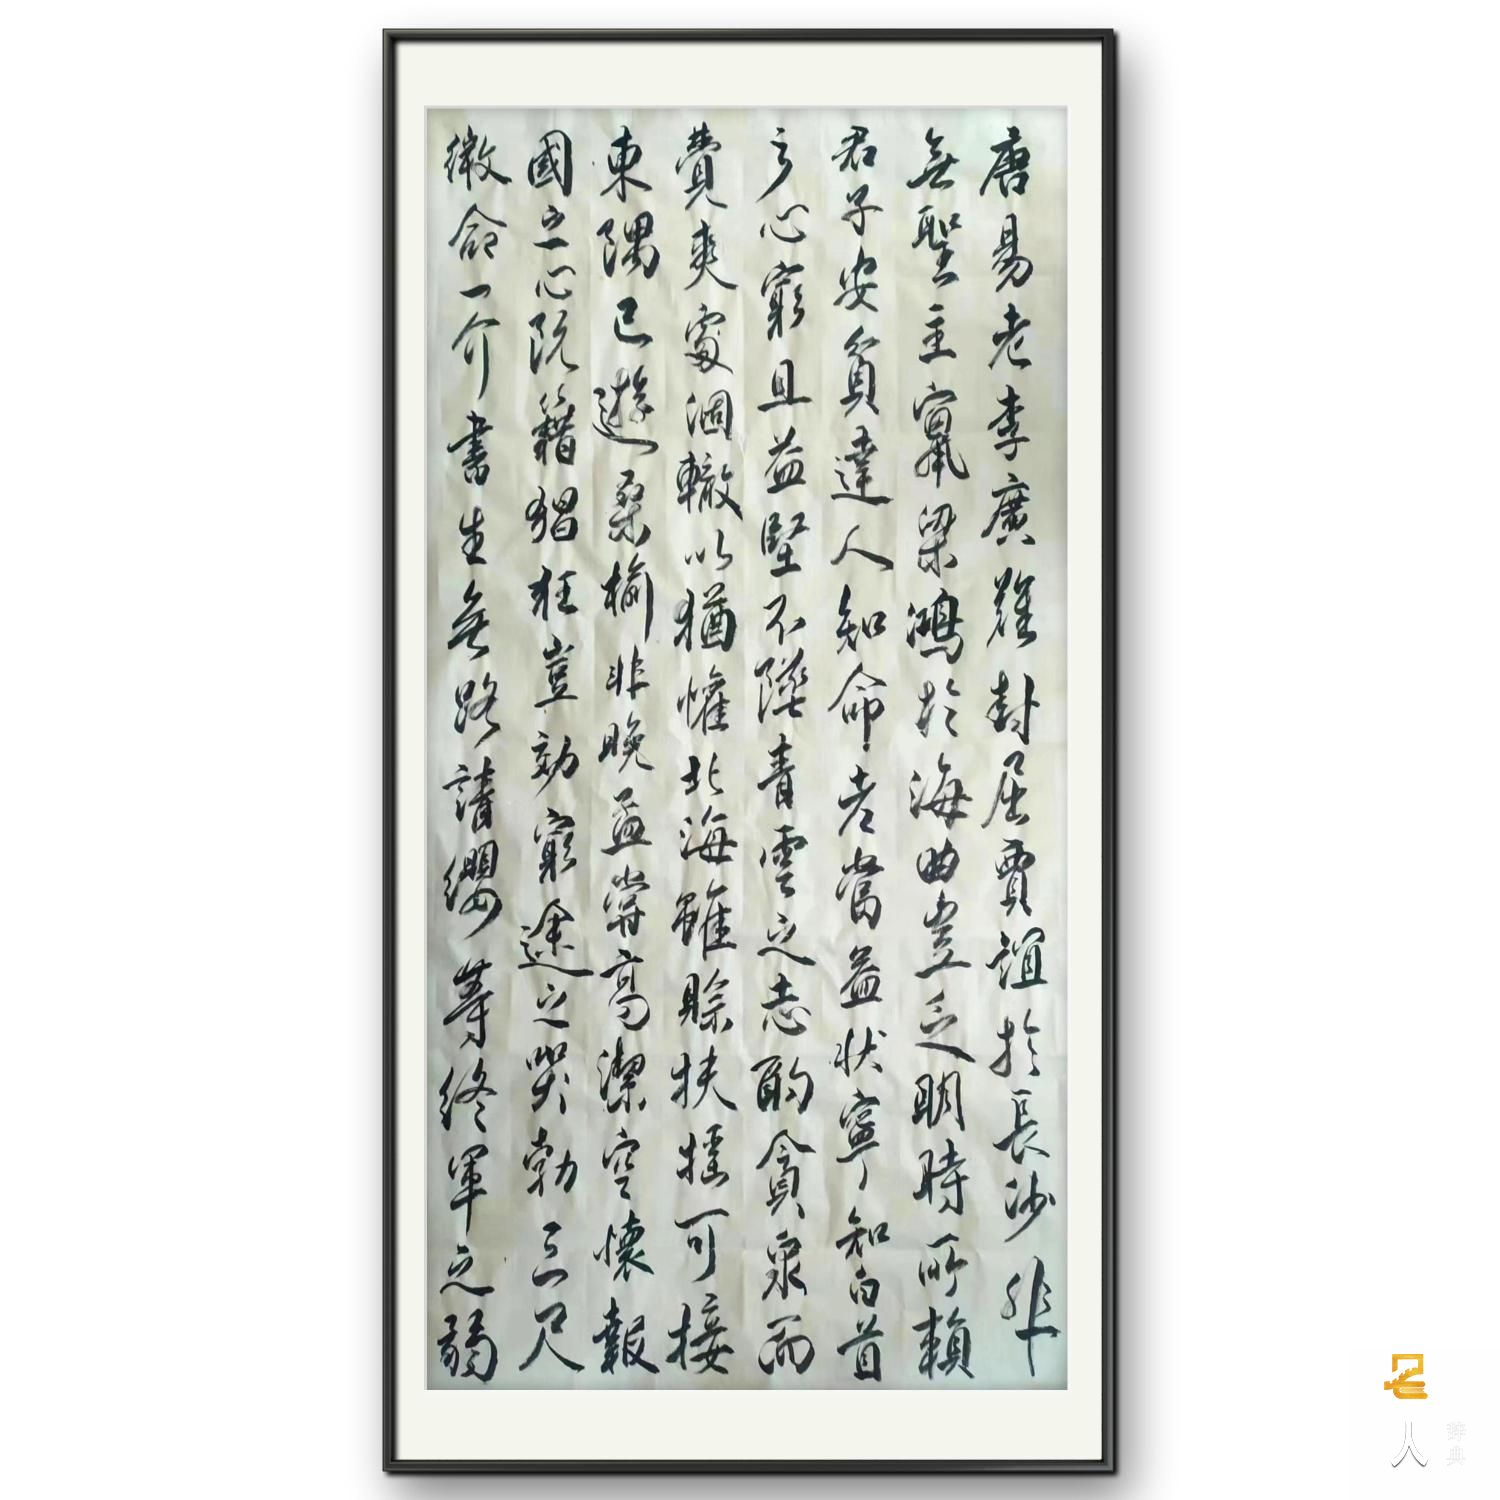 唐易老李廣難封屈賈誼於長沙非
無聖主竄梁鴻於海曲豈乏明時所賴
君子安貧達人知命老當益狀寧知白首
之心窮且益堅不墜青雲之志酌貪泉而
覺爽處涸轍以猶懽北海雖賒扶摇可接
東隅已遊桑榆非晚孟嘗高潔空懷報
國之心阮籍猖狂豈効窮途之哭勃三尺
微命一介書生無路請纓等終軍之弱
名人辞典